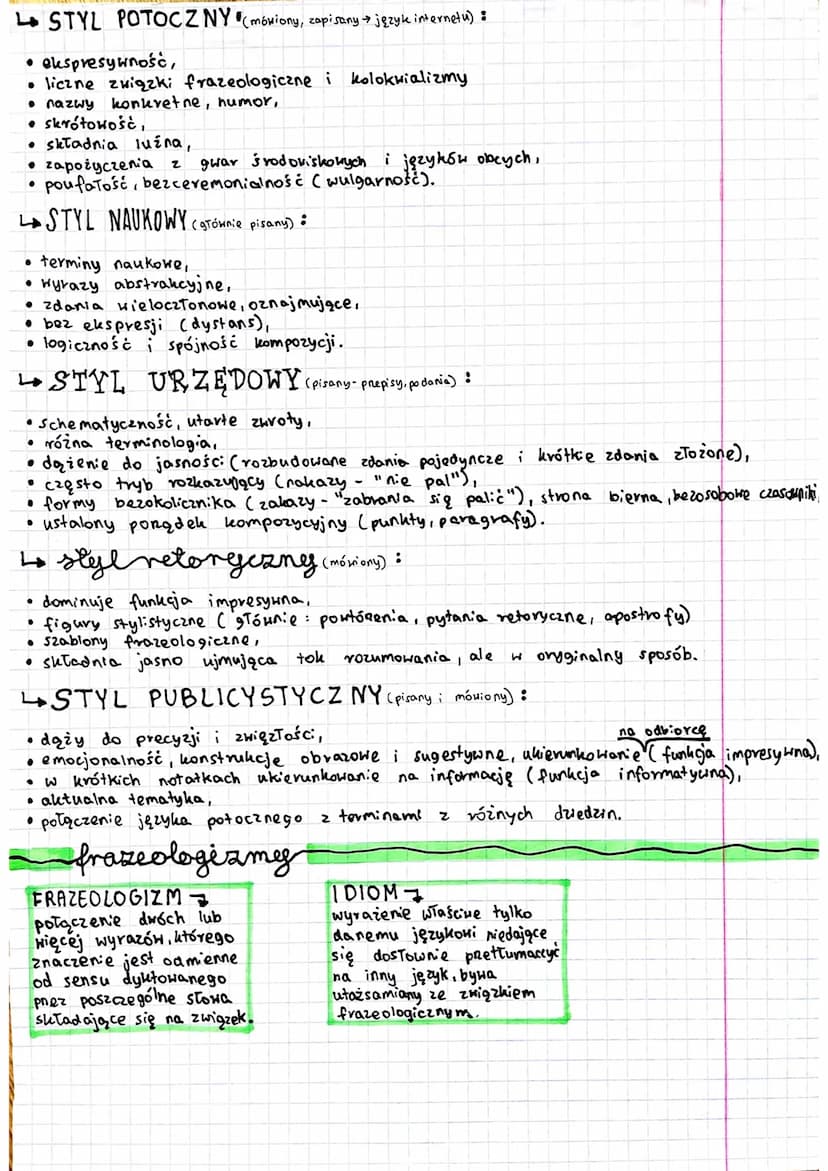 ↳ STYL POTOCZNY (mówiony, zapisany → język internetu) :
• ekspresywność,
• liczne związki frazeologiczne i kolokwializmy
• nazwy konkretne, humor,
• skrótowość,
• składnia luźna,
• zapożyczenia z gwar środowiskowych i języków obcych,
• poufałość, bezceremonialność (wulgarność).
↳ STYL NAUKOWY (głównie pisany) :
• terminy naukowe,
• wyrazy abstrakcyjne,
• zdania wieloczłonowe, oznajmujące,
• bez ekspresji (dystans),
• logiczność i spójność kompozycji.
↳ STYL URZĘDOWY (pisany - przepisy, podania) :
• schematyczność, utarte zwroty,
• różna terminologia,
• dążenie do jasności (rozbudowane zdania pojedyncze i krótkie zdania złożone),
• często tryb rozkazujący (nakazy - "nie pal"),
• formy bezokolicznika (zakazy - "zabrania się palić"), strona bierna, bezosobowe czasowniki,
• ustalony porządek kompozycyjny (punkty, paragrafy).
↳ styl retoryczny (mówiony) :
• dominuje funkcja impresywna,
• figury stylistyczne (głównie : powtórzenia, pytania retoryczne, apostrofy)
• szablony frazeologiczne,
• składnia jasno ujmująca tok rozumowania, ale w oryginalny sposób.
↳ STYL PUBLICYSTYCZNY (pisany i mówiony) :
• dąży do precyzji i zwięzłości,
na odbiorcę
• emocjonalność, konstrukcje obrazowe i sugestywne, ukierunkowanie (funkcja impresywna),
• w krótkich notatkach ukierunkowanie na informację (funkcja informatywna),
• aktualna tematyka,
• połączenie języka potocznego z terminami z różnych dziedzin.
frazeologizmy
FRAZEOLOGIZM
połączenie dwóch lub
więcej wyrazów, którego
znaczenie jest odmienne
od sensu dyktowanego
przez poszczególne słowa
składające się na związek.
IDIOM
wyrażenie właściwe tylko
danemu językowi niedające
się dosłownie przetłumaczyć
na inny język, bywa
utożsamiany ze związkiem
frazeologicznym.